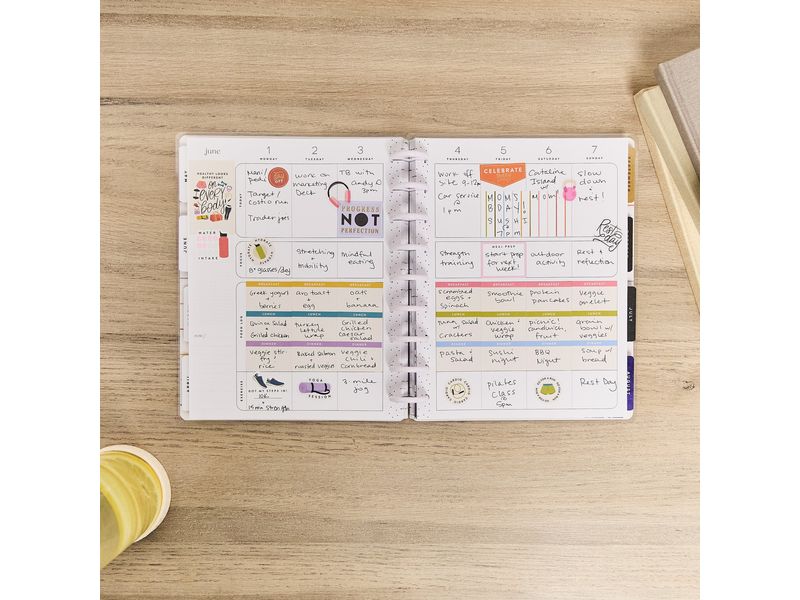 june
HEALTHY LOOKS
DIFFERENT
on
every
body
WATER
INTAKE
1
MONDAY
2
TUESDAY
3
WEDNESDAY
Mani/
Pedi
DAY
OFF
Target/
Costco run
Trader Joe's
Work on
marketing
Deck
TB with
Andy @
3pm
PROGRESS
NOT
PERFECTION
HYDRATE
8+ glasses/day
Stretching
+
mobility
mindful
eating
BREAKFAST
BREAKFAST
BREAKFAST
Greek yogurt
+
berries
avo toast
+
egg
oats
+
banana
LUNCH
LUNCH
LUNCH
Quinoa Salad
+
Grilled chicken
turkey
lettuce
wrap
Grilled
chicken
caesar
salad
DINNER
DINNER
DINNER
veggie stir
fry +
rice
Baked salmon
+
roasted veggies
veggie
chili +
Cornbread
EXERCISE
GOT MY STEPS IN!
10k
+
15min strength
YOGA
SESSION
3-mile
Jog
4
THURSDAY
5
FRIDAY
6
SATURDAY
7
SUNDAY
Work off
Site 9-12p
Car service
@
1pm
CELEBRATE
MOM'S
BDAY!
SUSHI
@
7pm
Cateline
Island
w/
Mom!
Slow
down
+
rest!
Rest
day
Strength
training
MEAL PREP
start prep
for next
week!
outdoor
activity
Rest +
reflection
BREAKFAST
BREAKFAST
BREAKFAST
BREAKFAST
scrambled
eggs +
spinach
smoothie
bowl
protein
pancakes
veggie
omelet
LUNCH
LUNCH
LUNCH
LUNCH
tuna salad
w/
crackers
Chicken
veggie
wrap
picnic!
sandwich,
fruit
Grain
bowl w/
veggies
DINNER
DINNER
DINNER
DINNER
pasta +
Salad
sushi
night
BBQ
Night
soup w/
bread
pilates
class
@
5pm
Rest Day
MAY
JUNE
JULY
AUGUST